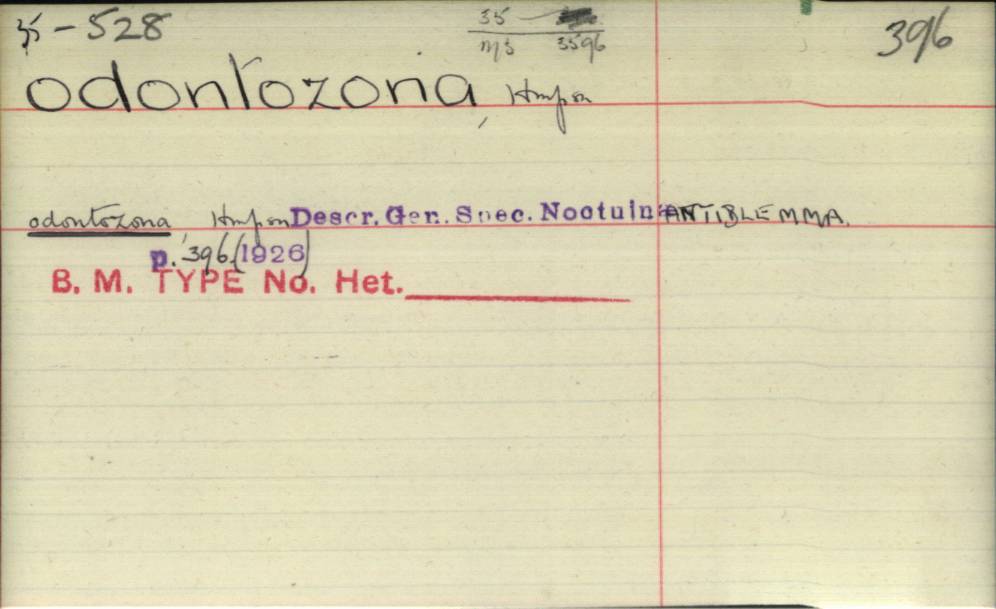 35-528 35 396
MS 3596
odontozona, Hmpsn
odontozona, Hmpsn Descr. Gen. Spec. Noctuin ANTIBLEMMA.
p. 396 (1926)
B. M. TYPE No. Het.